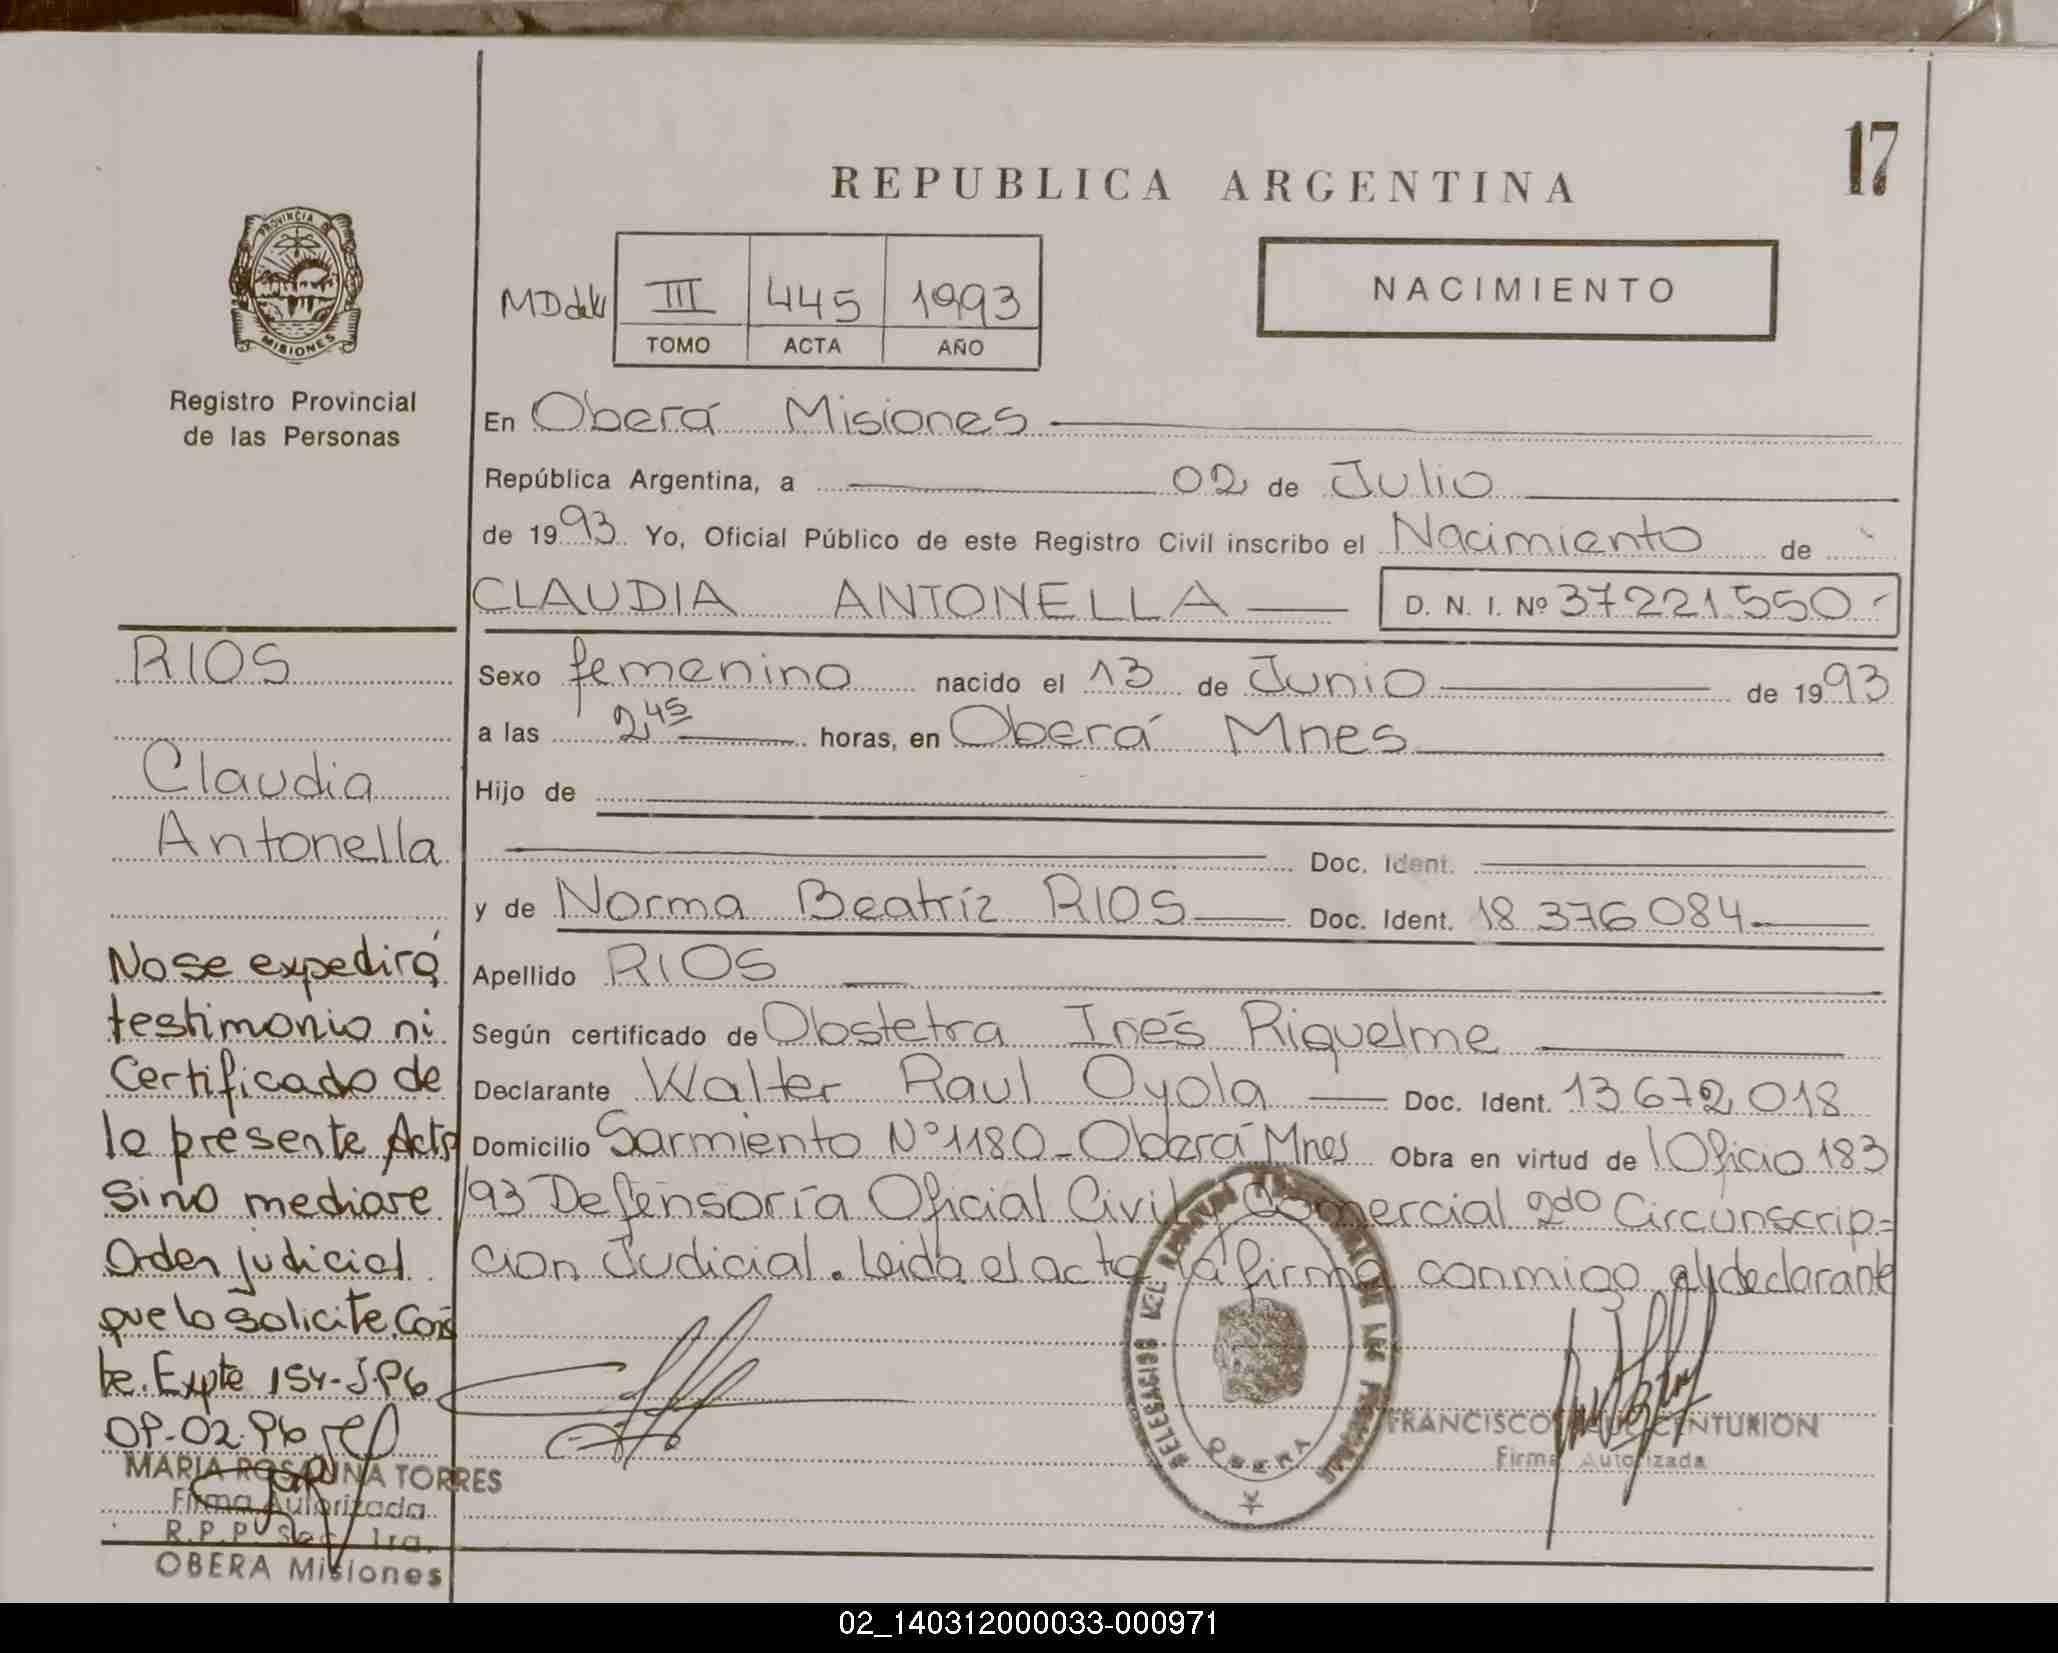 17
REPUBLICA ARGENTINA
PROVINCIA DE MISIONES
III 445 1993
TOMO ACTA AÑO
NACIMIENTO
Registro Provincial
de las Personas
En Oberá Misiones
República Argentina, a 02 de Julio
de 1993 Yo, Oficial Público de este Registro Civil inscribo el Nacimiento de
CLAUDIA ANTONELLA D. N. I. Nº 37221.550.-
Sexo femenino nacido el 13 de Junio de 1993
a las 2,45 horas, en Oberá Mnes
Hijo de
Doc. Ident.
y de Norma Beatríz RIOS Doc. Ident. 18.376.084
Apellido RIOS
Según certificado de Obstetra Inés Riquelme
Declarante Walter Raul Oyola Doc. Ident. 13.672.018
Domicilio Sarmiento Nº 1180 - Oberá Mnes Obra en virtud de Oficio 183
/93 Defensoría Oficial Civil y Comercial 2do Circunscrip=
cion Judicial. Leida el acta la firma conmigo el declarante
RIOS
Claudia
Antonella
No se expedirá
testimonio ni
Certificado de
la presente Acta
sino mediare
Orden judicial
que lo solicite. Cons
te. Expte 154-
MARIA TORRES
Firma Autorizada
R.P.P. Sec. 1ra.
OBERA Misiones
OBERA
FRANCISCO CENTURION
Firma Autorizada
02_140312000033-000971